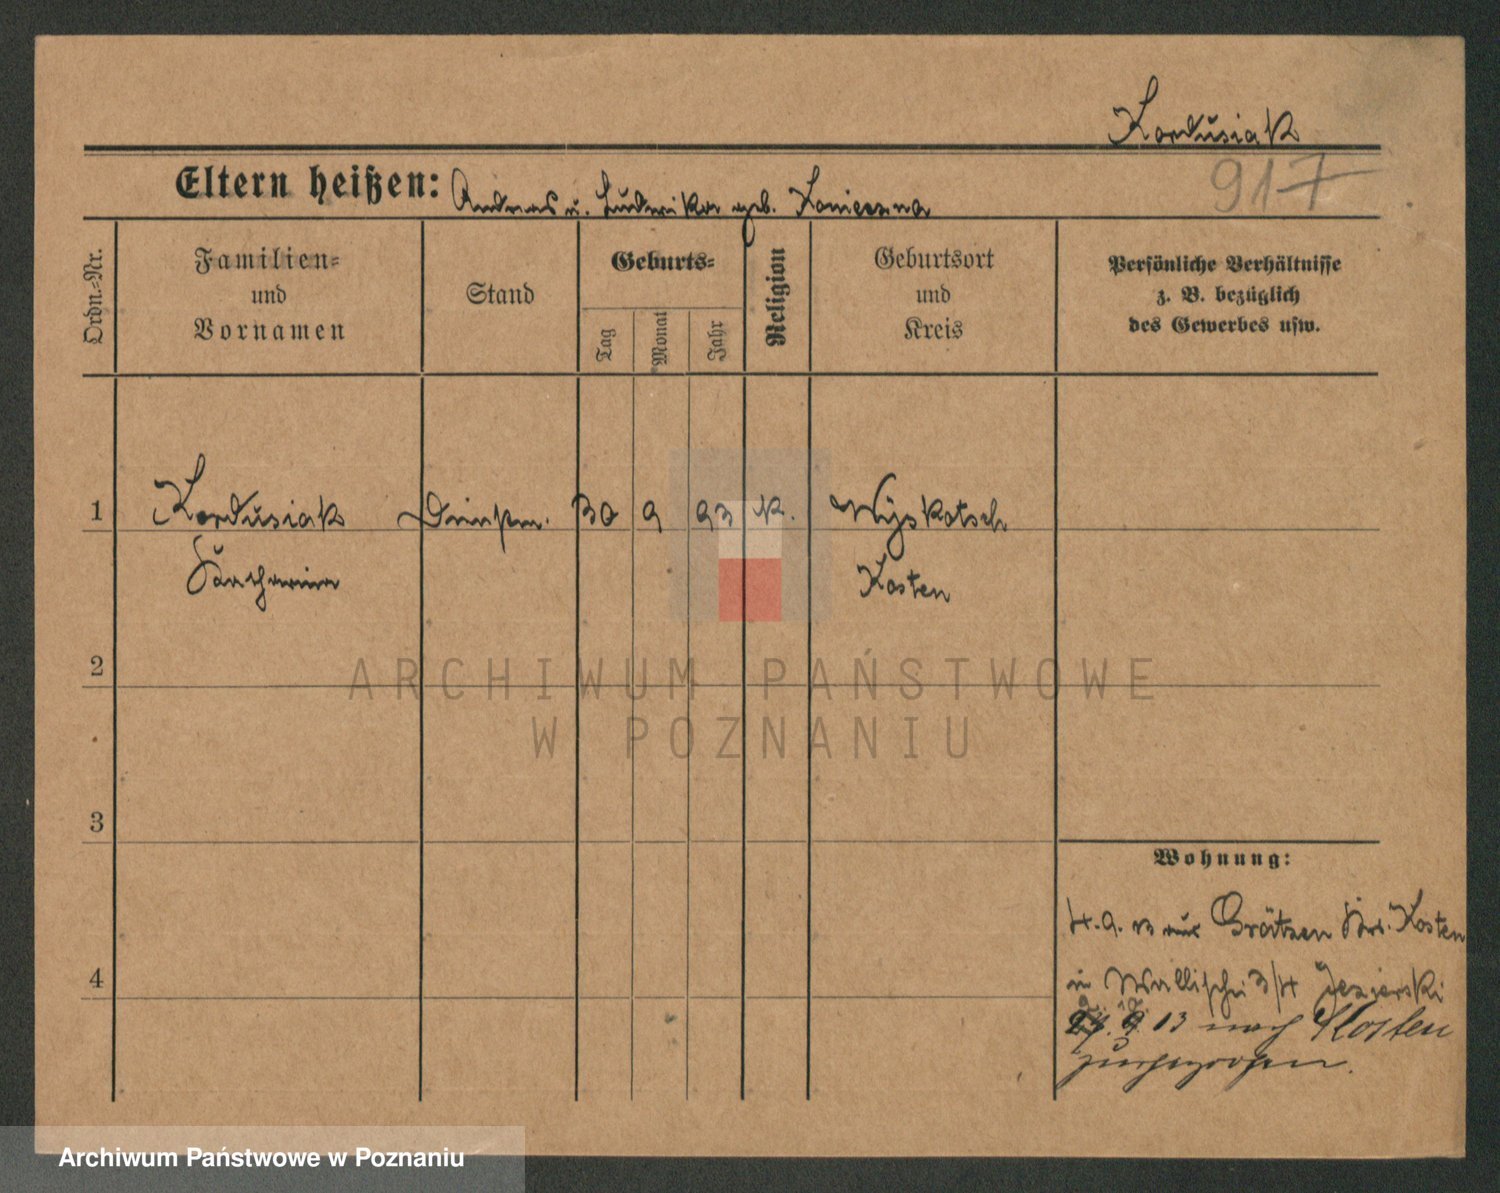 Kordusiak
917
Eltern heißen: Andreas u. Ludwika geb. Konieczna
Ordn.-Nr.
Familien-
und
Vornamen
Stand
Geburts-
Tag
Monat
Jahr
Religion
Geburtsort
und
Kreis
Persönliche Verhältnisse
z. B. bezüglich
des Gewerbes usw.
1
Kordusiak
30 9 93 K.
Wyskotsch
Kosten
2
ARCHIWUM PAŃSTWOWE
W POZNANIU
3
Wohnung:
4.9. 13 aus Grätzen Krs. Kosten
4
in Wallischei 3/4 Jezierski
13 nach Kosten
Archiwum Państwowe w Poznaniu